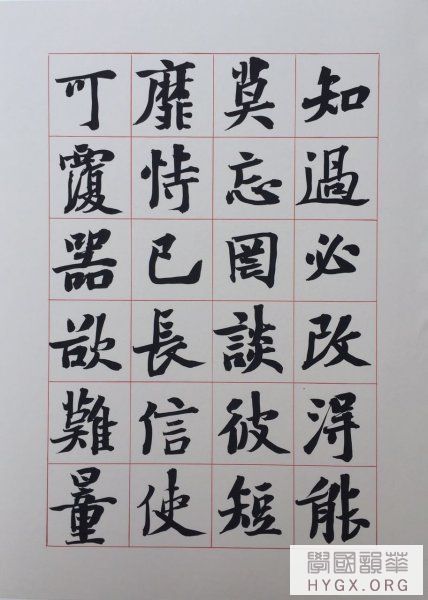 知過必改得能
莫忘罔談彼短
靡恃己長信使
可覆器欲難量
學國韻華
HYGX.ORG